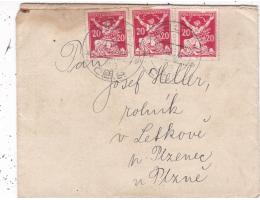 20 20 20 20 20
Pan
Josef Heller,
rolník
v Letkově
p. Plzenec
u Plzně